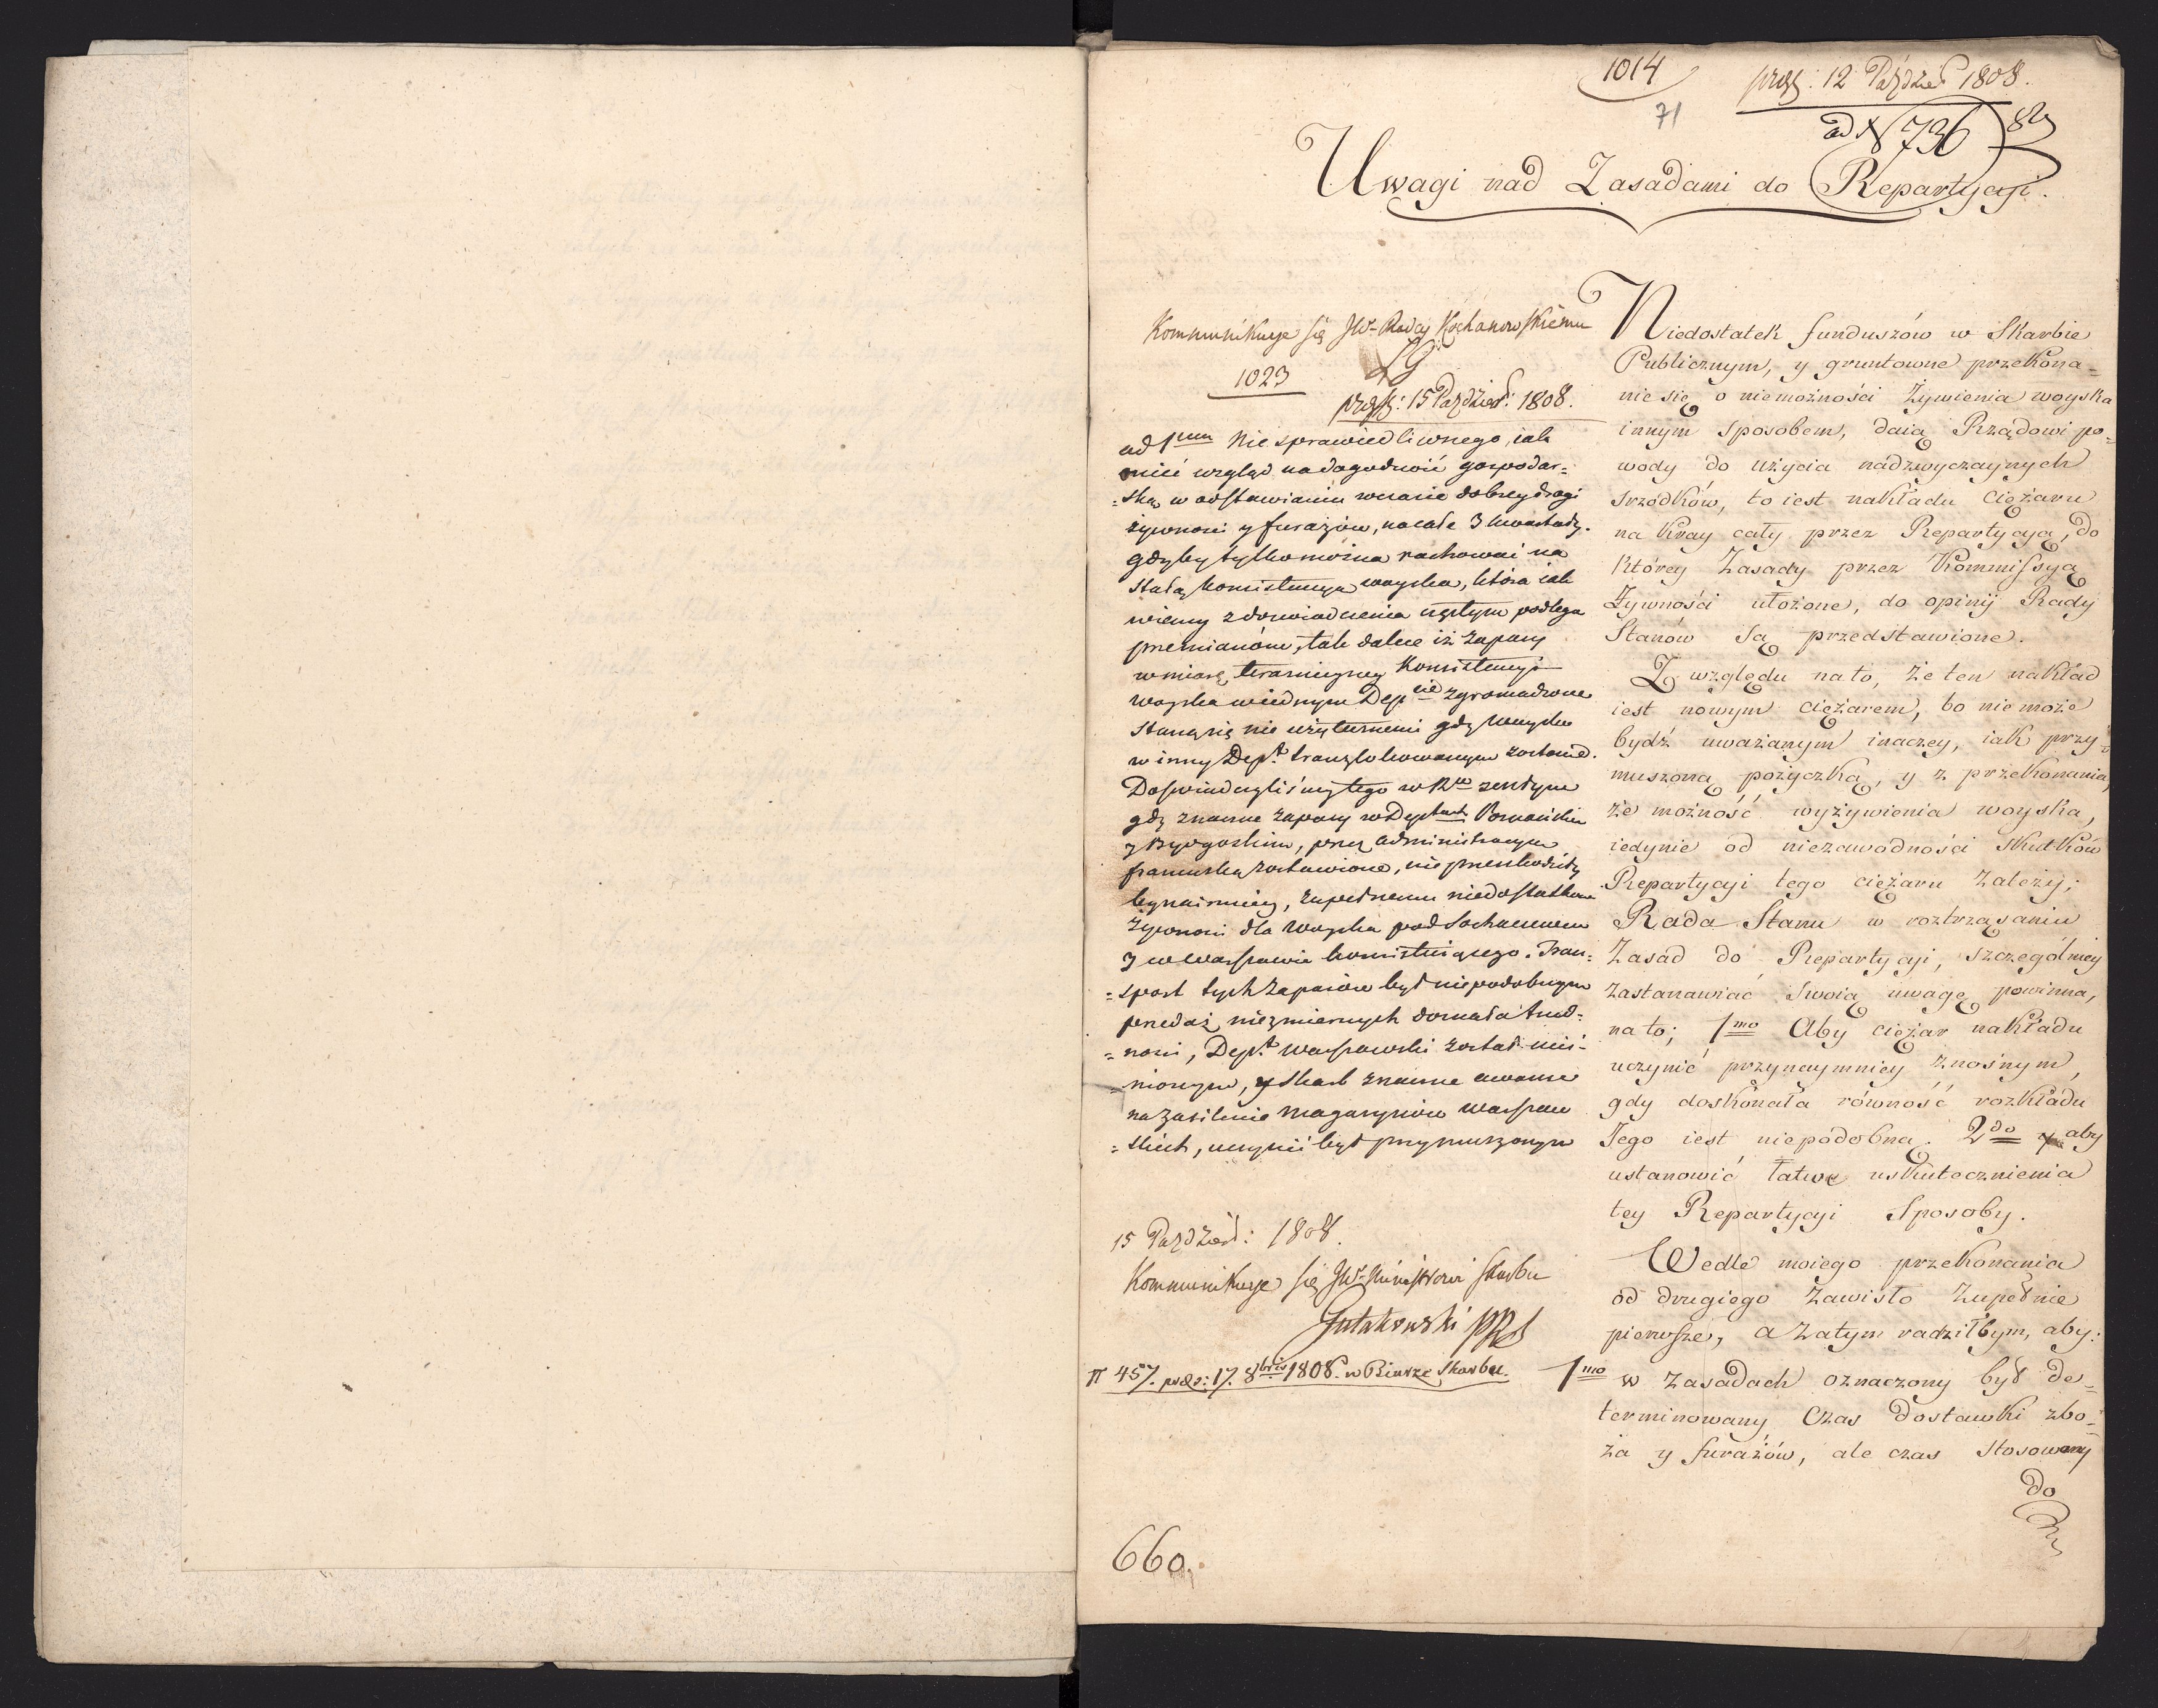 1014
71
prez: 12 Paździer 1808.
ad N 736
82
Uwagi nad Zasadami do Repartycyi.
Kommunikuje się JW. Radcy Kochanowskiemu
1023
prez: 15 Paździer: 1808.
ad 1mum Nic sprawiedliwszego, iak
mieć wzgląd na dogodność gospodar=
=ską w odstawianiu w czasie dobrey drogi
żywności y furażów, na całe 3 kwartały.
gdyby tylko można rachować na
stałą konsistencyą woyska, która iak
wiemy z doswiadczenia częstym podlega
przemianom, tak dalece iż zapasy
w miarę teraznieyszey Konsistencyi
woyska w iednym Depcie zgromadzone
staną się nie użytecznemi gdy woysko
w inny Dept. translokowanym zostanie.
Doswiadczyliśmy tego w Rku zeszłym
gdy znaczne zapasy w Deptach Poznańskim
y Bydgoskim, przez administracyą
francuską zostawione, nie przeszkodziły
bynaimniey, zupełnemu niedostatkowi
żywności dla woyska pod Sochaczewem
y w Warszawie konsistuiącego. Tran=
=sport tych zapasów był niepodobnym
przedaż niezmiernych doznała trud=
=ności, Dept. Warszawski został uciś=
=nionym, y Skarb znaczne awanse
na zasilenie magazynów Warszaw
=skich, uczynić był przymuszonym
15 Paździer: 1808.
Kommunikuje się JW. Ministrowi Skarbu
Gutakowski PRS
N 457. prez: 17. 8bris 1808. w Biurze Skarbu.
660.
Niedostatek funduszów w Skarbie
Publicznym, y gruntowne przekona=
nie się o niemożności Żywienia woyska
innym sposobem, daią Rządowi po=
wody do użycia nadzwyczaynych
srzodków, to iest nakładu ciężaru
na Kray cały przez Repartycyą, do
którey Zasady przez Kommissyą
Żywności ułożone, do opinij Rady
Stanów są przedstawione.
Z względu na to, że ten nakład
iest nowym ciężarem, bo nie może
bydź uważanym inaczey, iak przy=
muszoną pożyczką, y z przekonania,
że możność wyżywienia woyska,
iedynie od niezawodności skutków
Repartycyi tego ciężaru zależy;
Rada Stanu w roztrząsaniu
Zasad do Repartycyi, szczególniey
zastanawiać swoią uwagę powinna,
na to; 1mo Aby ciężar nakładu
uczynić przynaymniey znośnym,
gdy doskonała równość rozkładu
Jego iest niepodobną. 2do aby
ustanowić łatwe uskutecznienia
tey Repartycyi Sposoby.
Wedle moiego przekonania
od drugiego zawisło zupełnie
pierwsze, a zatym radziłbym, aby:
1mo w zasadach oznaczony był de=
terminowany czas dostawki zbo=
ża y furażów, ale czas stosowany
do